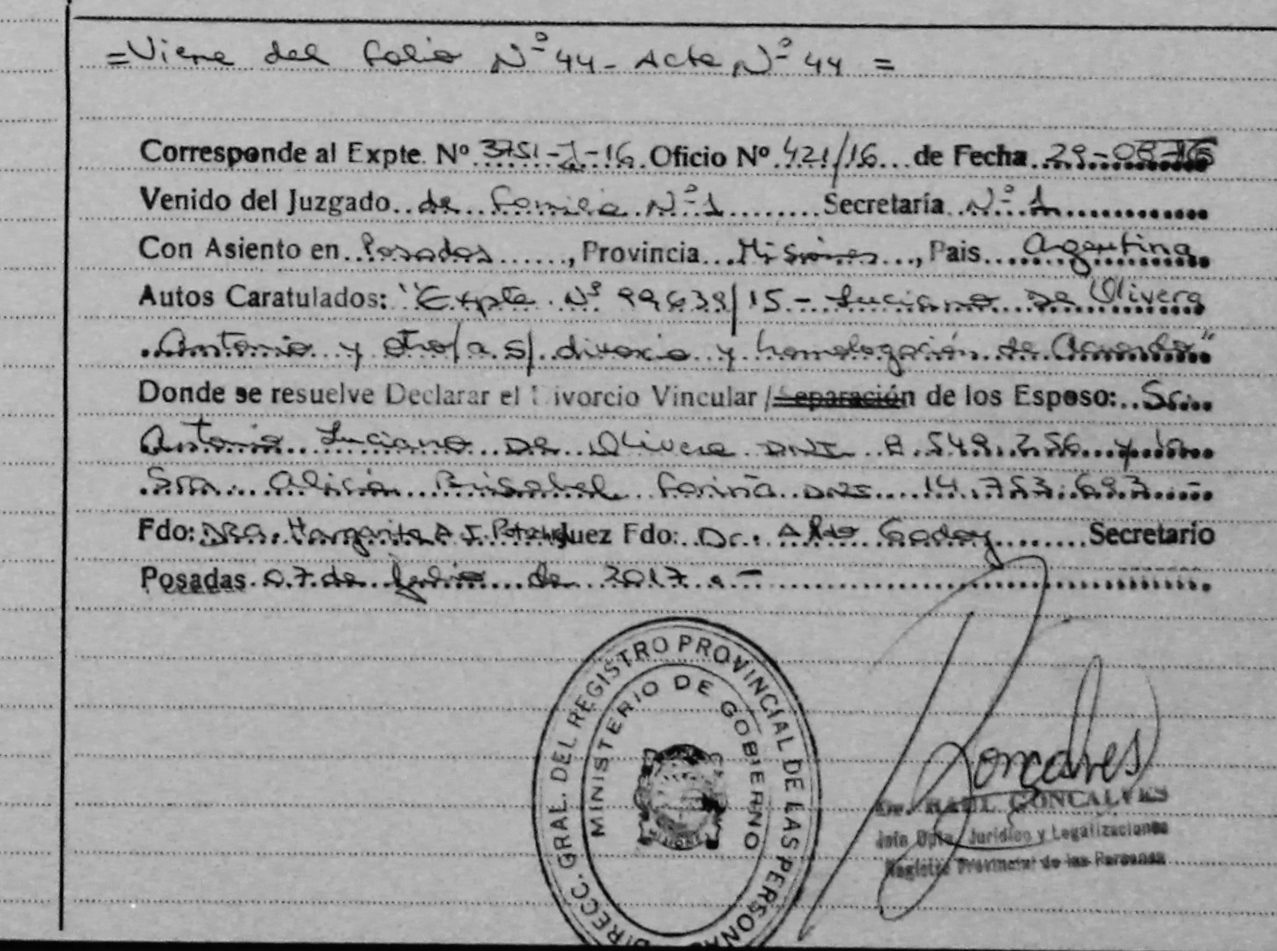 =Viene del folio Nº 44- Acta Nº 44 =
Corresponde al Expte. Nº 3751-J-16 Oficio Nº 421/16 de Fecha 29-08-16
Venido del Juzgado de Familia Nº 1 Secretaría Nº 1
Con Asiento en Posadas, Provincia Misiones, Pais Argentina
Autos Caratulados: "Expte. Nº 99638/15 - Luciano De Olivera
Antonio y otro/a s/ divorcio y homologación de Acuerdo"
Donde se resuelve Declarar el Divorcio Vincular / Separación de los Esposo: Sr.
Antonio Luciano De Olivera DNI 8.549.256 y la
Sra. Alicia Fariña DNI 14.753.693.-
Fdo: DRA. Margarita juez Fdo: Dr. Aldo Godoy Secretario
Posadas 07 de Julio de 2017.-
DIRECC. GRAL. DEL REGISTRO PROVINCIAL DE LAS PERSONAS
MINISTERIO DE GOBIERNO
Gonçalves
Dr. RAUL GONCALVES
Jefe Dpto. Jurídico y Legalizaciones
Registro Provincial de las Personas